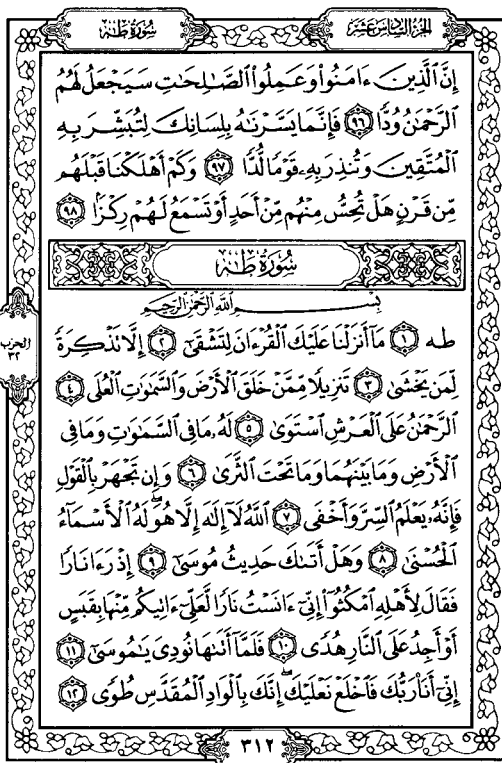 الجزء السادس عشر
سورة طه
إِنَّ ٱلَّذِينَ ءَامَنُوا۟ وَعَمِلُوا۟ ٱلصَّـٰلِحَـٰتِ سَيَجْعَلُ لَهُمُ
ٱلرَّحْمَـٰنُ وُدًّا ٩٦ فَإِنَّمَا يَسَّرْنَـٰهُ بِلِسَانِكَ لِتُبَشِّرَ بِهِ
ٱلْمُتَّقِينَ وَتُنذِرَ بِهِۦ قَوْمًا لُّدًّا ٩٧ وَكَمْ أَهْلَكْنَا قَبْلَهُم
مِّن قَرْنٍ هَلْ تُحِسُّ مِنْهُم مِّنْ أَحَدٍ أَوْ تَسْمَعُ لَهُمْ رِكْزًۢا ٩٨
سورة طه
بِسْمِ ٱللَّهِ ٱلرَّحْمَـٰنِ ٱلرَّحِيمِ
طه ١ مَآ أَنزَلْنَا عَلَيْكَ ٱلْقُرْءَانَ لِتَشْقَىٰٓ ٢ إِلَّا تَذْكِرَةً
لِّمَن يَخْشَىٰ ٣ تَنزِيلًا مِّمَّنْ خَلَقَ ٱلْأَرْضَ وَٱلسَّمَـٰوَٰتِ ٱلْعُلَى ٤
ٱلرَّحْمَـٰنُ عَلَى ٱلْعَرْشِ ٱسْتَوَىٰ ٥ لَهُۥ مَا فِى ٱلسَّمَـٰوَٰتِ وَمَا فِى
ٱلْأَرْضِ وَمَا بَيْنَهُمَا وَمَا تَحْتَ ٱلثَّرَىٰ ٦ وَإِن تَجْهَرْ بِٱلْقَوْلِ
فَإِنَّهُۥ يَعْلَمُ ٱلسِّرَّ وَأَخْفَى ٧ ٱللَّهُ لَآ إِلَـٰهَ إِلَّا هُوَ ۖ لَهُ ٱلْأَسْمَآءُ
ٱلْحُسْنَىٰ ٨ وَهَلْ أَتَىٰكَ حَدِيثُ مُوسَىٰٓ ٩ إِذْ رَءَا نَارًا
فَقَالَ لِأَهْلِهِ ٱمْكُثُوٓا۟ إِنِّىٓ ءَانَسْتُ نَارًا لَّعَلِّىٓ ءَاتِيكُم مِّنْهَا بِقَبَسٍ
أَوْ أَجِدُ عَلَى ٱلنَّارِ هُدًى ١٠ فَلَمَّآ أَتَىٰهَا نُودِىَ يَـٰمُوسَىٰٓ ١١
إِنِّىٓ أَنَا۠ رَبُّكَ فَٱخْلَعْ نَعْلَيْكَ ۖ إِنَّكَ بِٱلْوَادِ ٱلْمُقَدَّسِ طُوًى ١٢
الحزب
٣٢
٣١٢